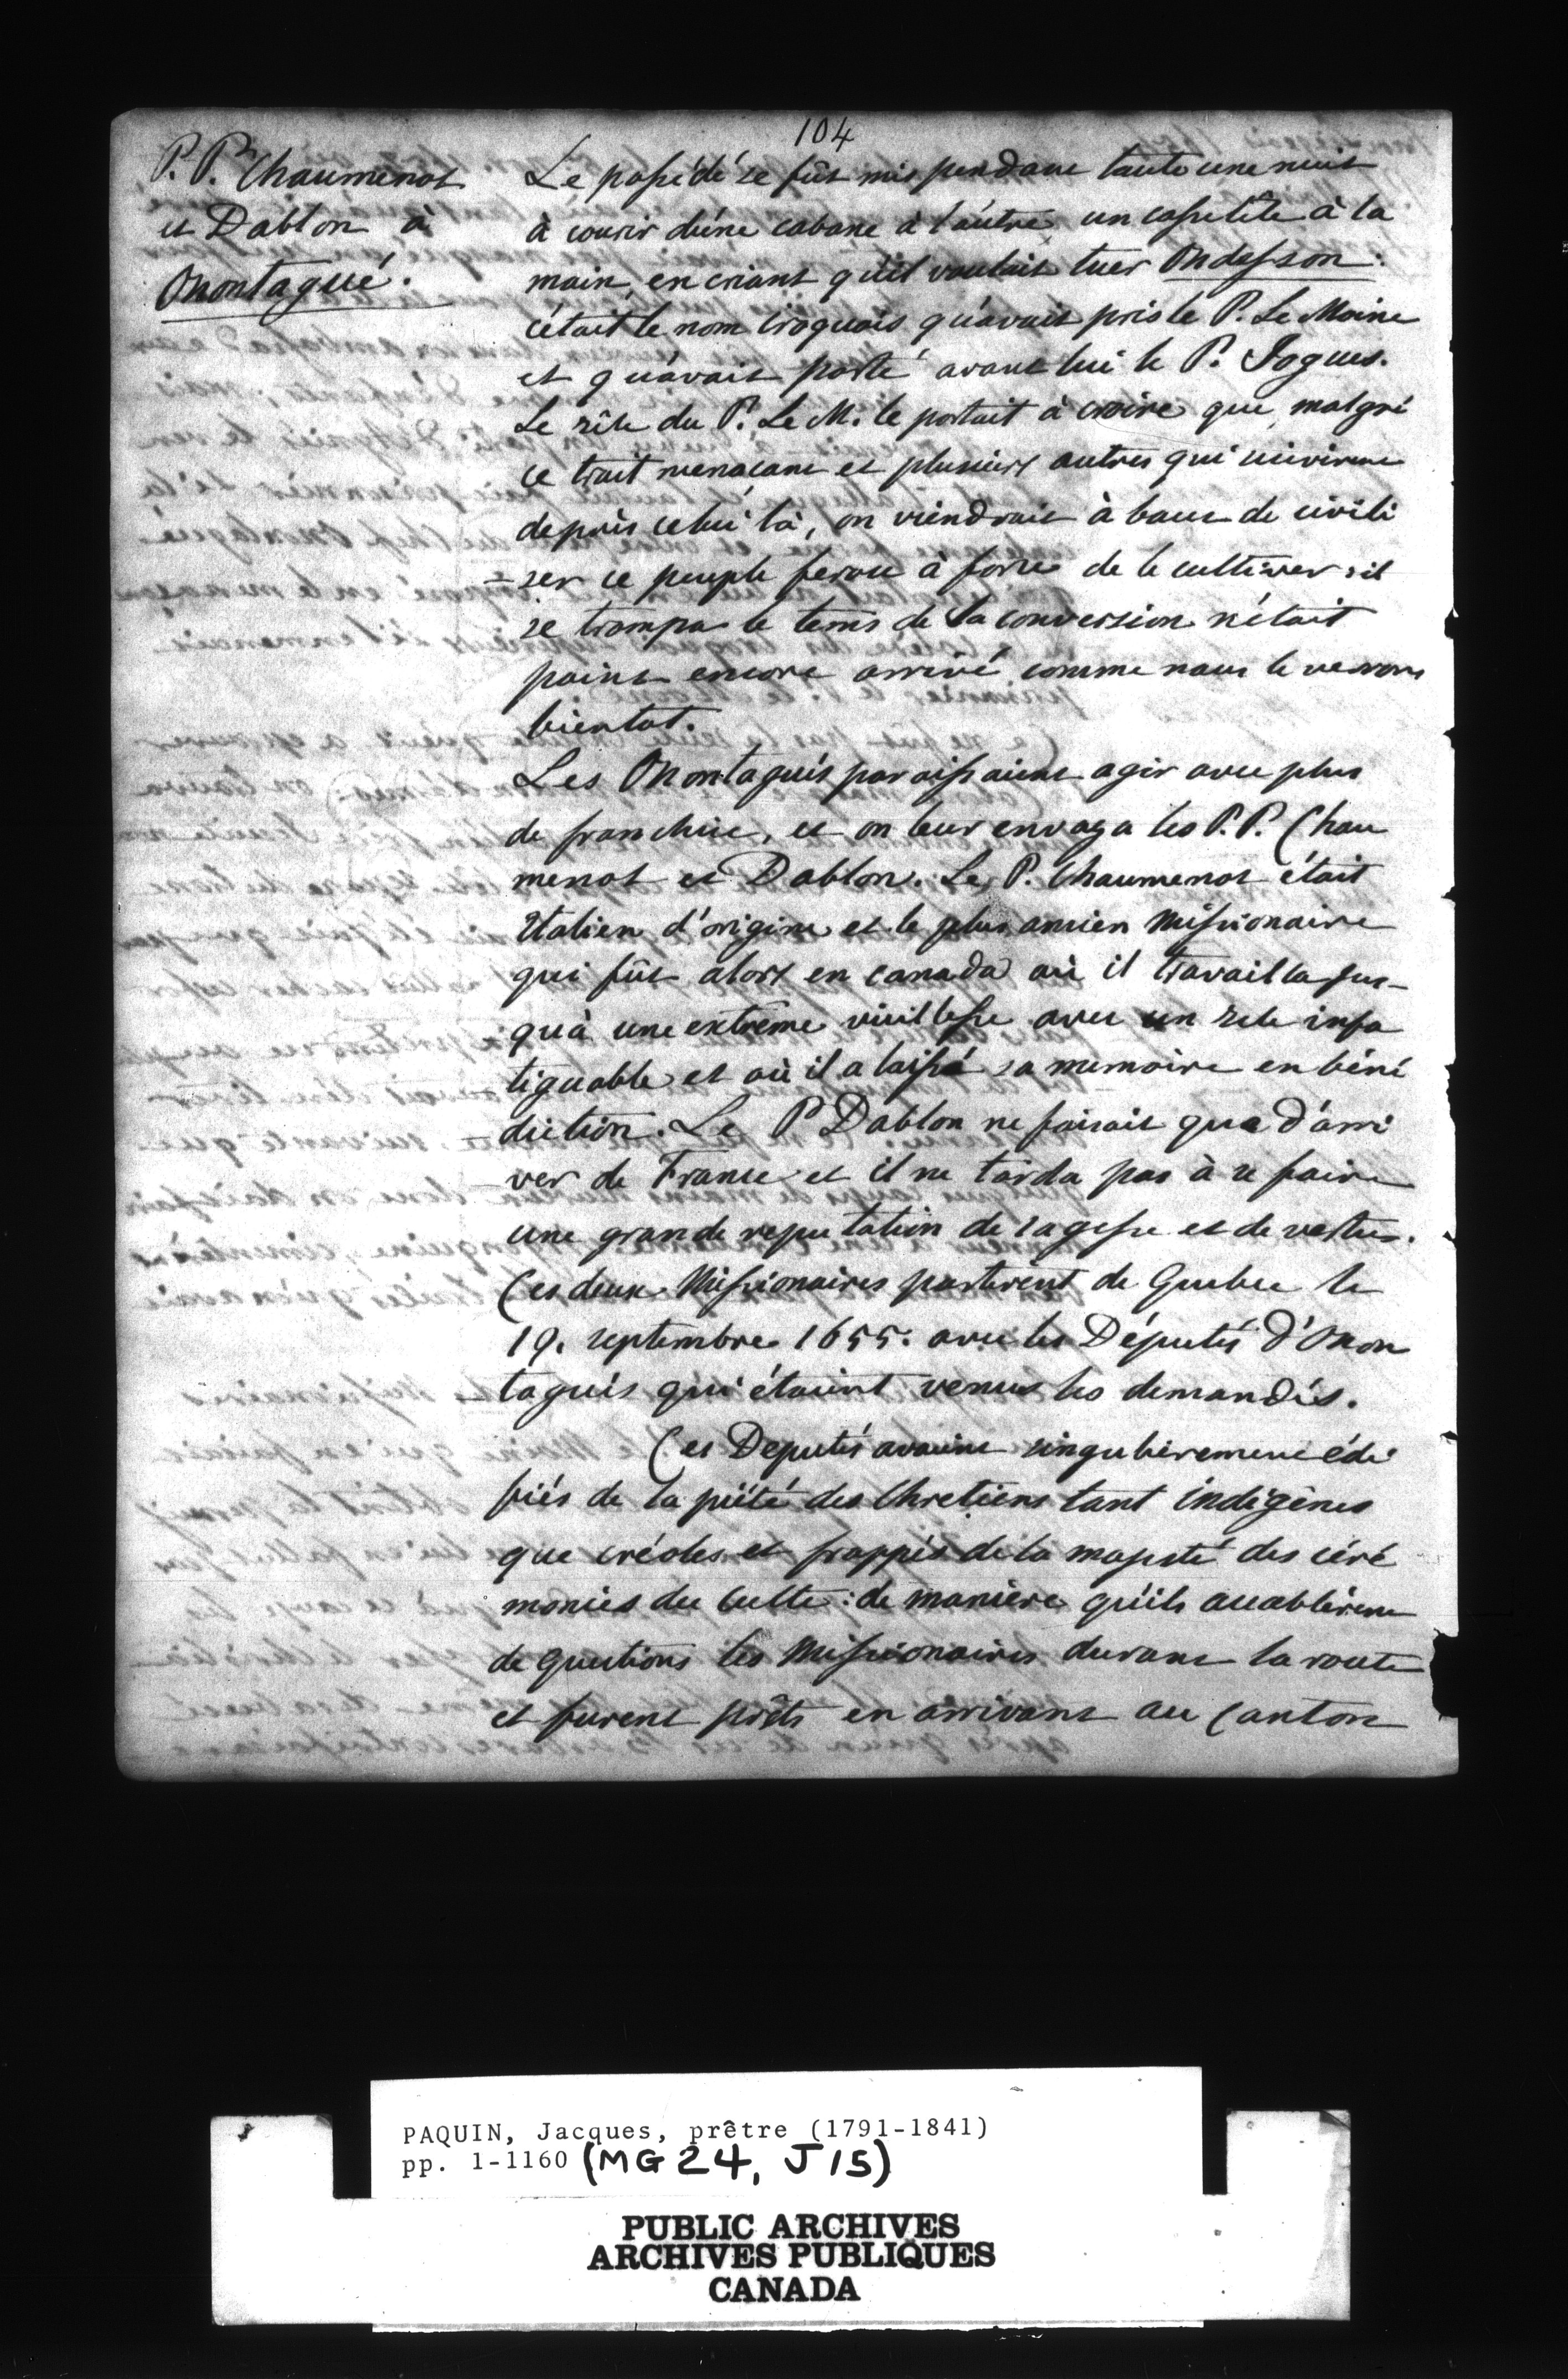 104
P. P. Chaumenot
et Dablon à
Onontagué.
Le possédé se fût mis pendant toute une nuit
à courir d'une cabane à l'autre, un cassetête à la
main, en criant qu'il voulait tuer Ondesson:
c'était le nom iroquois qu'avait pris le P. Le Moine
et qu'avait porté avant lui le P. Jogues.
Le zêle du P. Le M. le portait à croire que, malgré
ce trait menacant et plusieurs autres qui suivirent
depuis celui là, on viendrait à bout de civili
=ser ce peuple feroce à force de le cultiver: il
se trompa le tems de la conversion n'était
point encore arrivé comme nous le verrons
bientot.
Les Onontagués paroissaient agir avec plus
de franchise, et on leur envoya les P.P. Chau
menot et Dablon. Le P. Chaumenot était
Italien d'origine et le plus ancien Missionaire
qui fût alors en canada où il travailla jus-
qu'à une extrême vieillesse avec un zele infa
tiguable et où il a laissé sa memoire en béné
diction. Le P Dablon ne faisait que d'arri
ver de France et il ne tarda pas à se faire
une grande reputation de sagesse et de vertus.
Ces deux Missionaires partirent de Quebec le
19. septembre 1655. avec les Députés d'Onon
tagués qui étaient venus les demandés.
Ces Deputés avaient singulierement édi
fiés de la piété des Chretiens tant indigènes
que créoles et frappés de la majesté des céré
monies du culte: de manière qu'ils accablèrent
de questions les Missionaires durant la route
et furent prêts en arrivant au Canton
PAQUIN, Jacques, prêtre (1791-1841)
pp. 1-1160 (MG 24, J 15)
PUBLIC ARCHIVES
ARCHIVES PUBLIQUES
CANADA